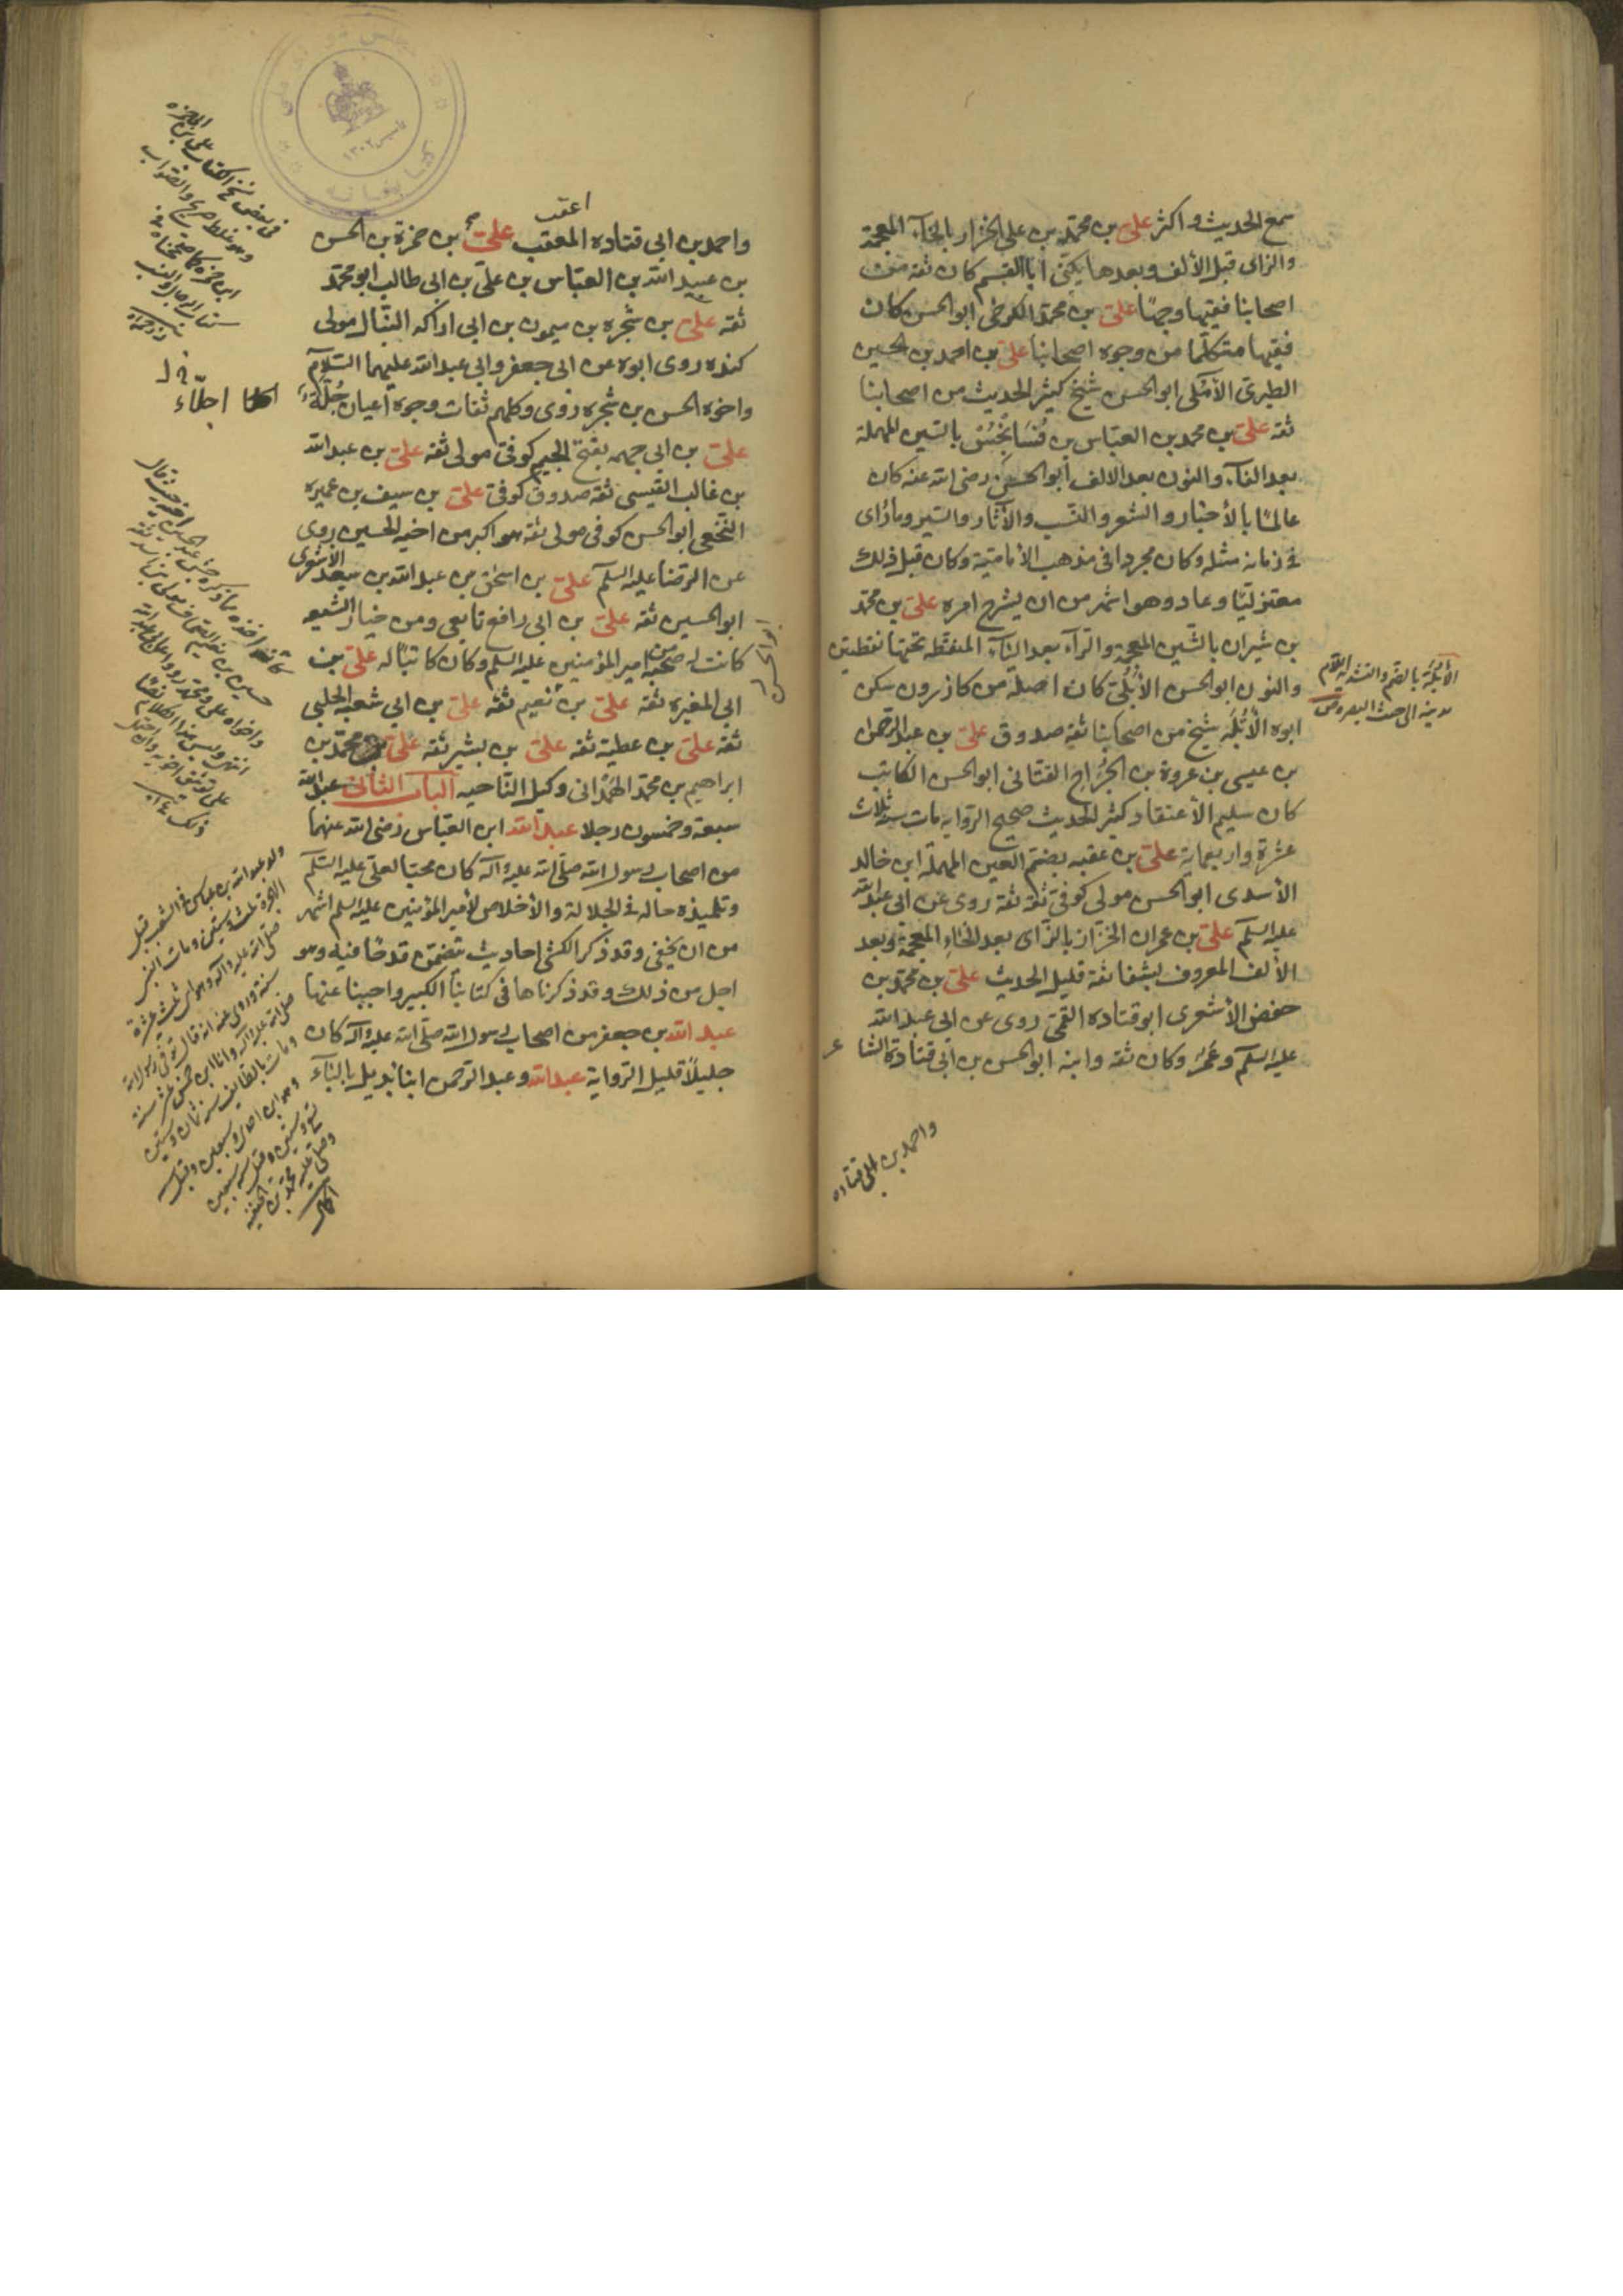 سمع الحديث و اكثر على بن محمد بن على الخزاز بالخاء المعجمة
والزاى قبل الألف و بعدها يكنى ابا القسم كان ثقة من
اصحابنا فقيها وجها على بن محمد الكرخى ابو الحسن كان
فقيها متكلما من وجوه اصحابنا على بن احمد بن الحسين
الطبرى الآملى ابو الحسن شيخ كثير الحديث من اصحابنا
ثقة على بن محمد بن العباس بن فسانجس بالسين المهملة
بعد الفاء والنون بعد الالف ابو الحسن رضى الله عنه كان
عالما بالأخبار و الشعر و النسب والآثار والسير وما رأى
فى زمانه مثله وكان مجردا فى مذهب الأمامية وكان قبل ذلك
معتزليا وعاد وهو اشهر من ان يشرح امره على بن محمد
بن شيران بالشين المعجمة والرآء بعد اليآء المنقطة تحتها نقطتين
والنون ابو الحسن الأبلى كان اصله من كازرون سكن
ابوه الأبلة شيخ من اصحابنا ثقة صدوق على بن عبد الرحمن
بن عيسى بن عروة بن الجراح القنانى ابو الحسن الكاتب
كان سليم الأعتقاد كثير الحديث صحيح الرواية مات سنة ثلاث
عشرة واربعماية على بن عقبه بضم العين المهملة ابن خالد
الأسدى ابو الحسن مولى كوفى ثقة ثقة روى عن ابى عبد الله
عليه السلم على بن عمران الخزاز بالزاى بعد الخاء المعجمة وبعد
الألف المعروف بشفا ثقة قليل الحديث على بن محمد بن
حفص الأشعرى ابو قتاده القمى روى عن ابى عبد الله
عليه السلم وعمر وكان ثقة وابنه ابو الحسن بن ابى قتادة الشا
عر
واحمد بن ابى قتاده
الأبلة بالضم والتشديد اللام
مدينة الى جنب البصره
اعقب
واحمد بن ابى قتاده المعقب على بن حمزة بن الحسن
بن عبيد الله بن العباس بن على بن ابى طالب ابو محمد
ثقة على بن شجره بن ميمون بن ابى اراكه النبال مولى
كنده روى ابوه عن ابى جعفر وابى عبد الله عليهما السلام
واخوه الحسن بن شجره روى وكلهم ثقات وجوه اعيان جلة
على بن ابى جهمه بفتح الجيم كوفى مولى ثقة على بن عبد الله
بن غالب القيسى ثقة صدوق كوفى على بن سيف بن عميره
النخعى ابو الحسن كوفى مولى ثقة هو اكبر من اخيه الحسين روى
عن الرضا عليه السلم على بن اسحق بن عبد الله بن سعد الأشعرى
ابو الحسين ثقة على بن ابى رافع تابعى ومن خيار الشيعه
كانت له صحبة من امير المؤمنين عليه السلم وكان كاتبا له على بن
ابى المغيره ثقة على بن نعيم ثقة على بن ابى شعبه الحلبى
ثقة على بن عطية ثقة على بن بشير ثقة على بن محمد بن
ابراهيم بن محمد الهمدانى وكيل الناحيه الباب الثانى عبد الله
سبعة وخمسون رجلا عبد الله ابن العباس رضى الله عنهما
من اصحاب رسول الله صلى الله عليه وآله كان محبا لعلى عليه السلم
وتلميذه حاله فى الجلالة والأخلاص لأمير المؤمنين عليه السلم اشهر
من ان يخفى وقد ذكر الكشى احاديث تتضمن قدحا فيه وهو
اجل من ذلك وقد ذكرناها فى كتابنا الكبير واجبنا عنها
عبد الله بن جعفر من اصحاب رسول الله صلى الله عليه وآله كان
جليلا قليل الرواية عبد الله وعبد الرحمن ابنا بديل بالباء
ابو الحسن
اجلاء
فى بعض نسخ الكتاب على بن ابى حمزه
وهو غلط صريح والصواب
ولد عبد الله بن عباس فى الشعب قبل
الهجرة بثلث سنين ومات النبى
صلى الله عليه وآله وهو ابن ثلث عشرة
سنة وروى عنه انه قال توفى رسول الله
صلى الله عليه وآله وانا ابن خمس عشر سنة
ومات بالطايف سنة ثمان وستين
وهو ابن احدى وسبعين وقيل سنة
تسع وستين وقيل سنة سبعين
وصلى عليه محمد بن الحنفية